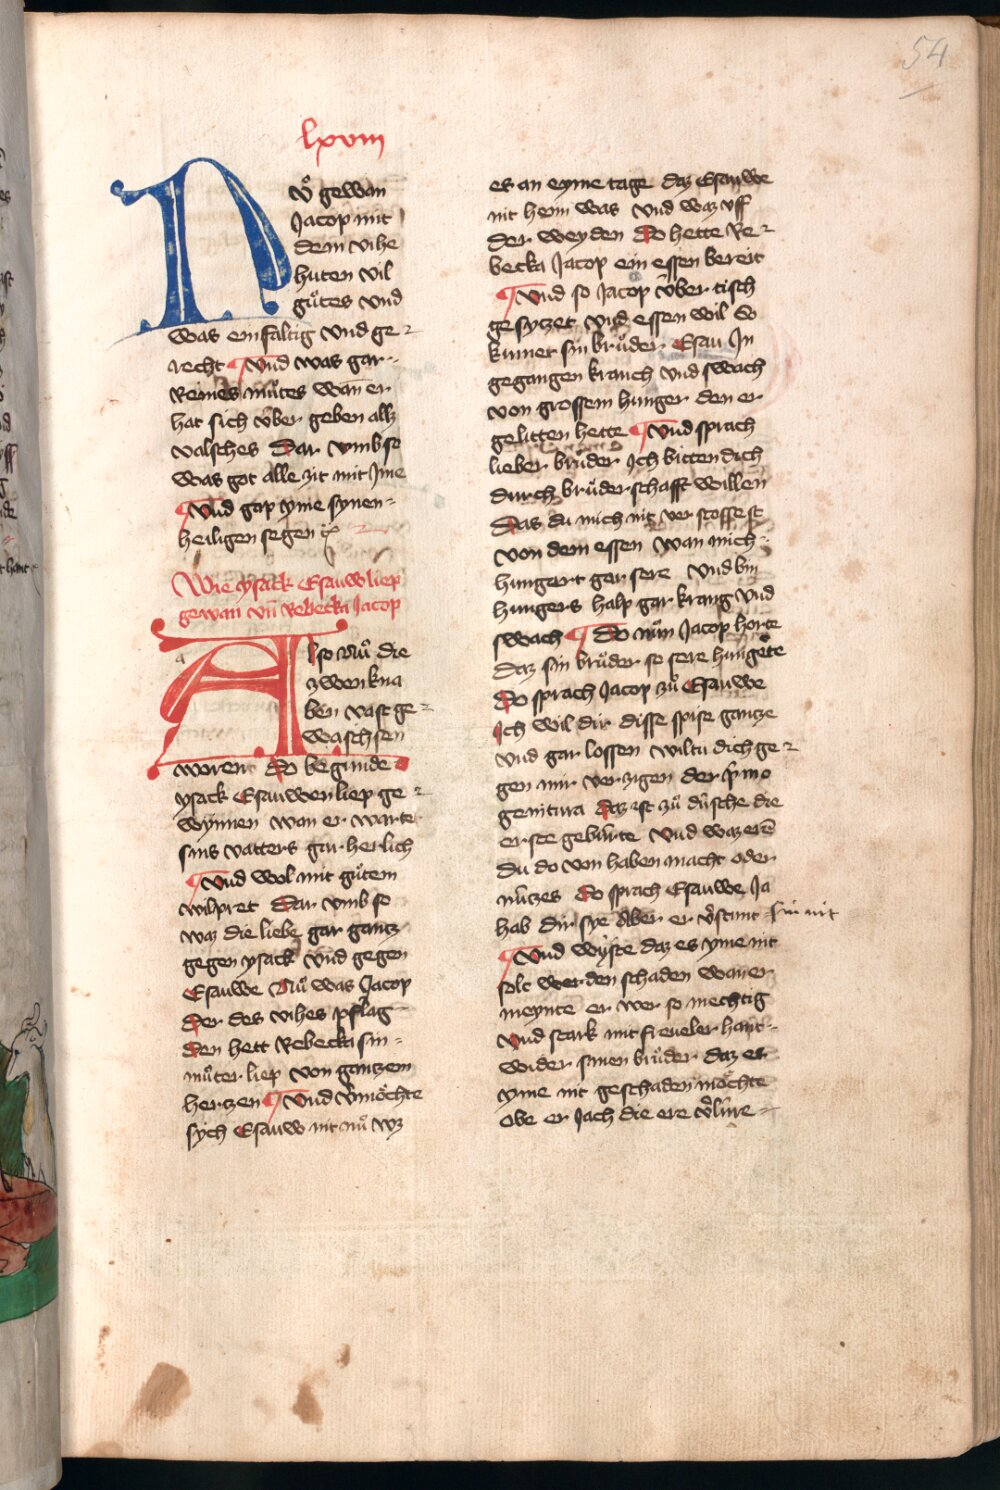 54
lxviii
Nů gewan
Jacop mit
dem vihe
huten vil
gůtes vnd
was einfaltig vnd ge
recht ¶ Vnd was gar
Reines můtes wan er
hat sich v̊ber geben alls
valsches Dar vmb so
was got alle zit mit Jme
¶ Vnd gap yme synen
heiligen segen
Wie ysack Esauw liep
gewan vn̄ Rebecka Jacop
Also Nů die
zwen kna
ben vast ge
waschsen
woren do begunde
ysack Esauwen liep ge
wynnen wan er warte
sins vatters gar herlich
¶ Vnd wol mit gůtem
wilpret Dar vmb so
waz die liebe gar gantz
gegen ysack vnd gegen
Esauwe Nů was Jacop
Der des vihes pflag
Den hett Rebecka sin
můter liep von gantzem
hertzen ¶ Vnd v̓möchte
sych Esauw nit nů wz
es an eyme tage daz Esauwe
nit heim was vnd waz vff
der weyden Do hette Re
becka Jacop ein essen bereit
¶ Vnd so Jacop v̊ber tisch
gesytzet vnd essen wil so
kumet sin brůder Esau Jn
gegangen kranch vnd swach
von grossem hunger den er
gelitten hette ¶ Vnd sprach
lieber brůder Ich bitten dich
durch brůderschafft willen
Das du mich nit verstossest
von dem essen wan mich
hungert gar sere vnd bin
hungers halp gar krang vnd
swach ¶ Do nům Jacop horte
daz sin brůder so sere hungete
Do sprach Jacop zů Esauwe
Ich wil dir disse spise gantze
vnd gar lossen wiltu dich ge
gen mir verzigen der p̓mo
genitura daz ist zů důsche die
erste gebůrte vnd waz erē
du do von haben macht oder
nůtzes Do sprach Esauwe Ja
hab dir sye Aber er v̓stunt sin nit
¶ Vnd wyste daz es yme nit
solt werden schaden wan er
meynte er wer so mechtig
vnd stark mit freueler hant
wider sinen brůder daz er
yme nit geschaden möchte
obe er Jach die ere v̓lůre